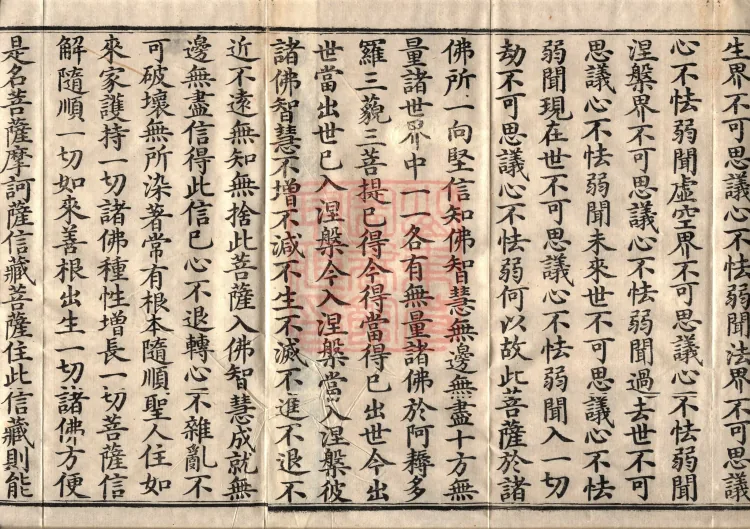 生界不可思議心不怯弱聞法界不可思議
心不怯弱聞虛空界不可思議心不怯弱聞
涅槃界不可思議心不怯弱聞過去世不可
思議心不怯弱聞未來世不可思議心不怯
弱聞現在世不可思議心不怯弱聞入一切
劫不可思議心不怯弱何以故此菩薩於諸
佛所一向堅信知佛智慧無邊無盡十方無
量諸世界中一一各有無量諸佛於阿耨多
羅三藐三菩提已得今得當得已出世今出
世當出世已入涅槃今入涅槃當入涅槃彼
諸佛智慧不增不減不生不滅不進不退不
近不遠無知無捨此菩薩入佛智慧成就無
邊無盡信得此信已心不退轉心不雜亂不
可破壞無所染著常有根本隨順聖人住如
來家護持一切諸佛種性增長一切菩薩信
解隨順一切如來善根出生一切諸佛方便
是名菩薩摩訶薩信藏菩薩住此信藏則能